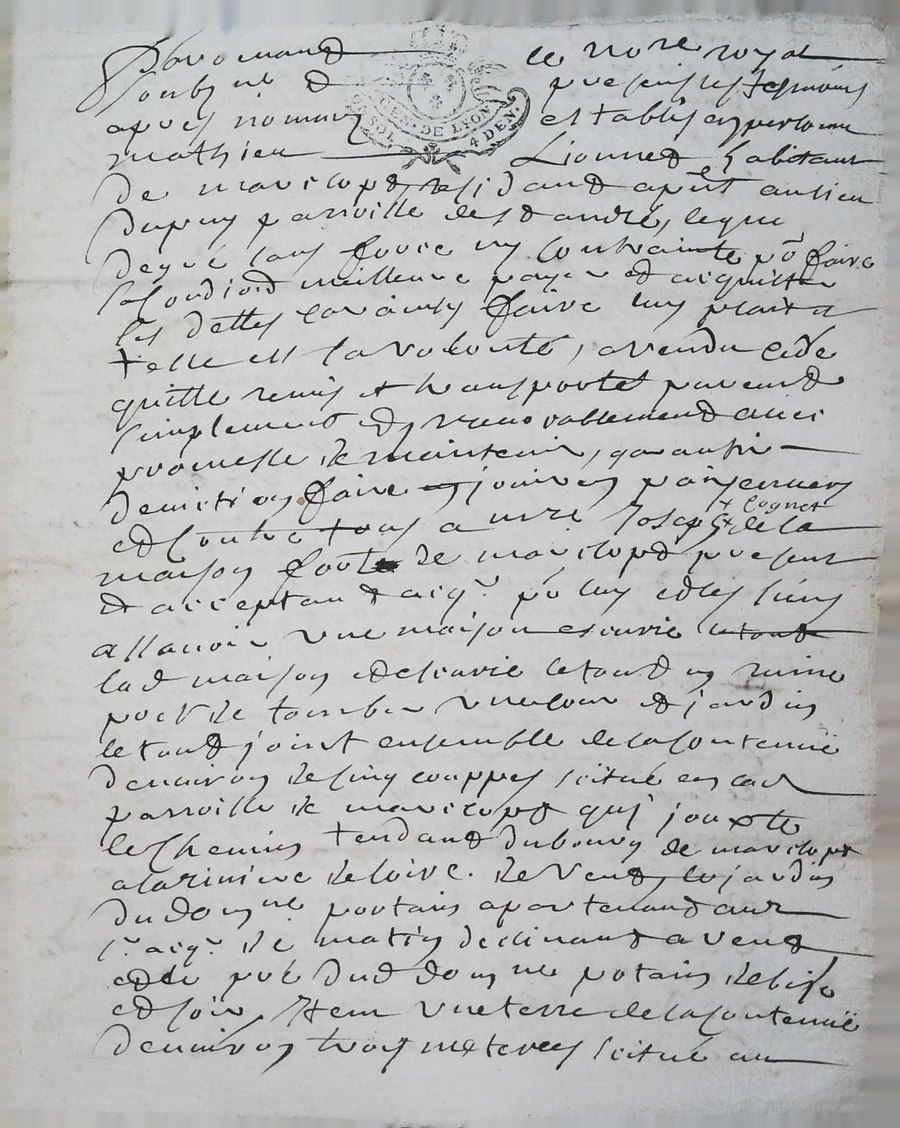 Pardevand le no.re royal
soubz.né & presens les tesmoins
apres nommez establis en personne
GEN. DE LYON
SOL 4 DEN.
mathieu Lionned habitant
de marclopt residand apñt au lieu
dupuy parroisse de st andré, lequel
degré sans force ny contrainte põ faire
sa condiõn meilleure payer et acquitter
ses dettes car ainsy faire luy plait et
telle est sa volonté, a vendu cede
quitte remis et transporté par vend
simplement et yrrevocablement avec
promesse de maintenir, garantir
deviction faire jouir
et contre tous a m.re Joseph + de la
+ Cognet
maison fort de marclopt present
et acceptand acq.r põ luy et les siens
assavoir une maison escurie le tout
lad maison et escurie le toud en ruine
prest de tomber une cour et jardin
le toud joint ensemble de la contenüe
denviron de cinq couppes scitué en lad
parroisse de marclopt qui jouxte
le chemin tendand du bourg de marclopt
a la riviere de loire. de vend le jardin
du dom.ne potain apartenand aud
s.r acq.r de matin declinand a vend
et le pré dud dom.ne potain de bise
et soir. Item une terre de la contenüe
denviron trois meterees scitué au